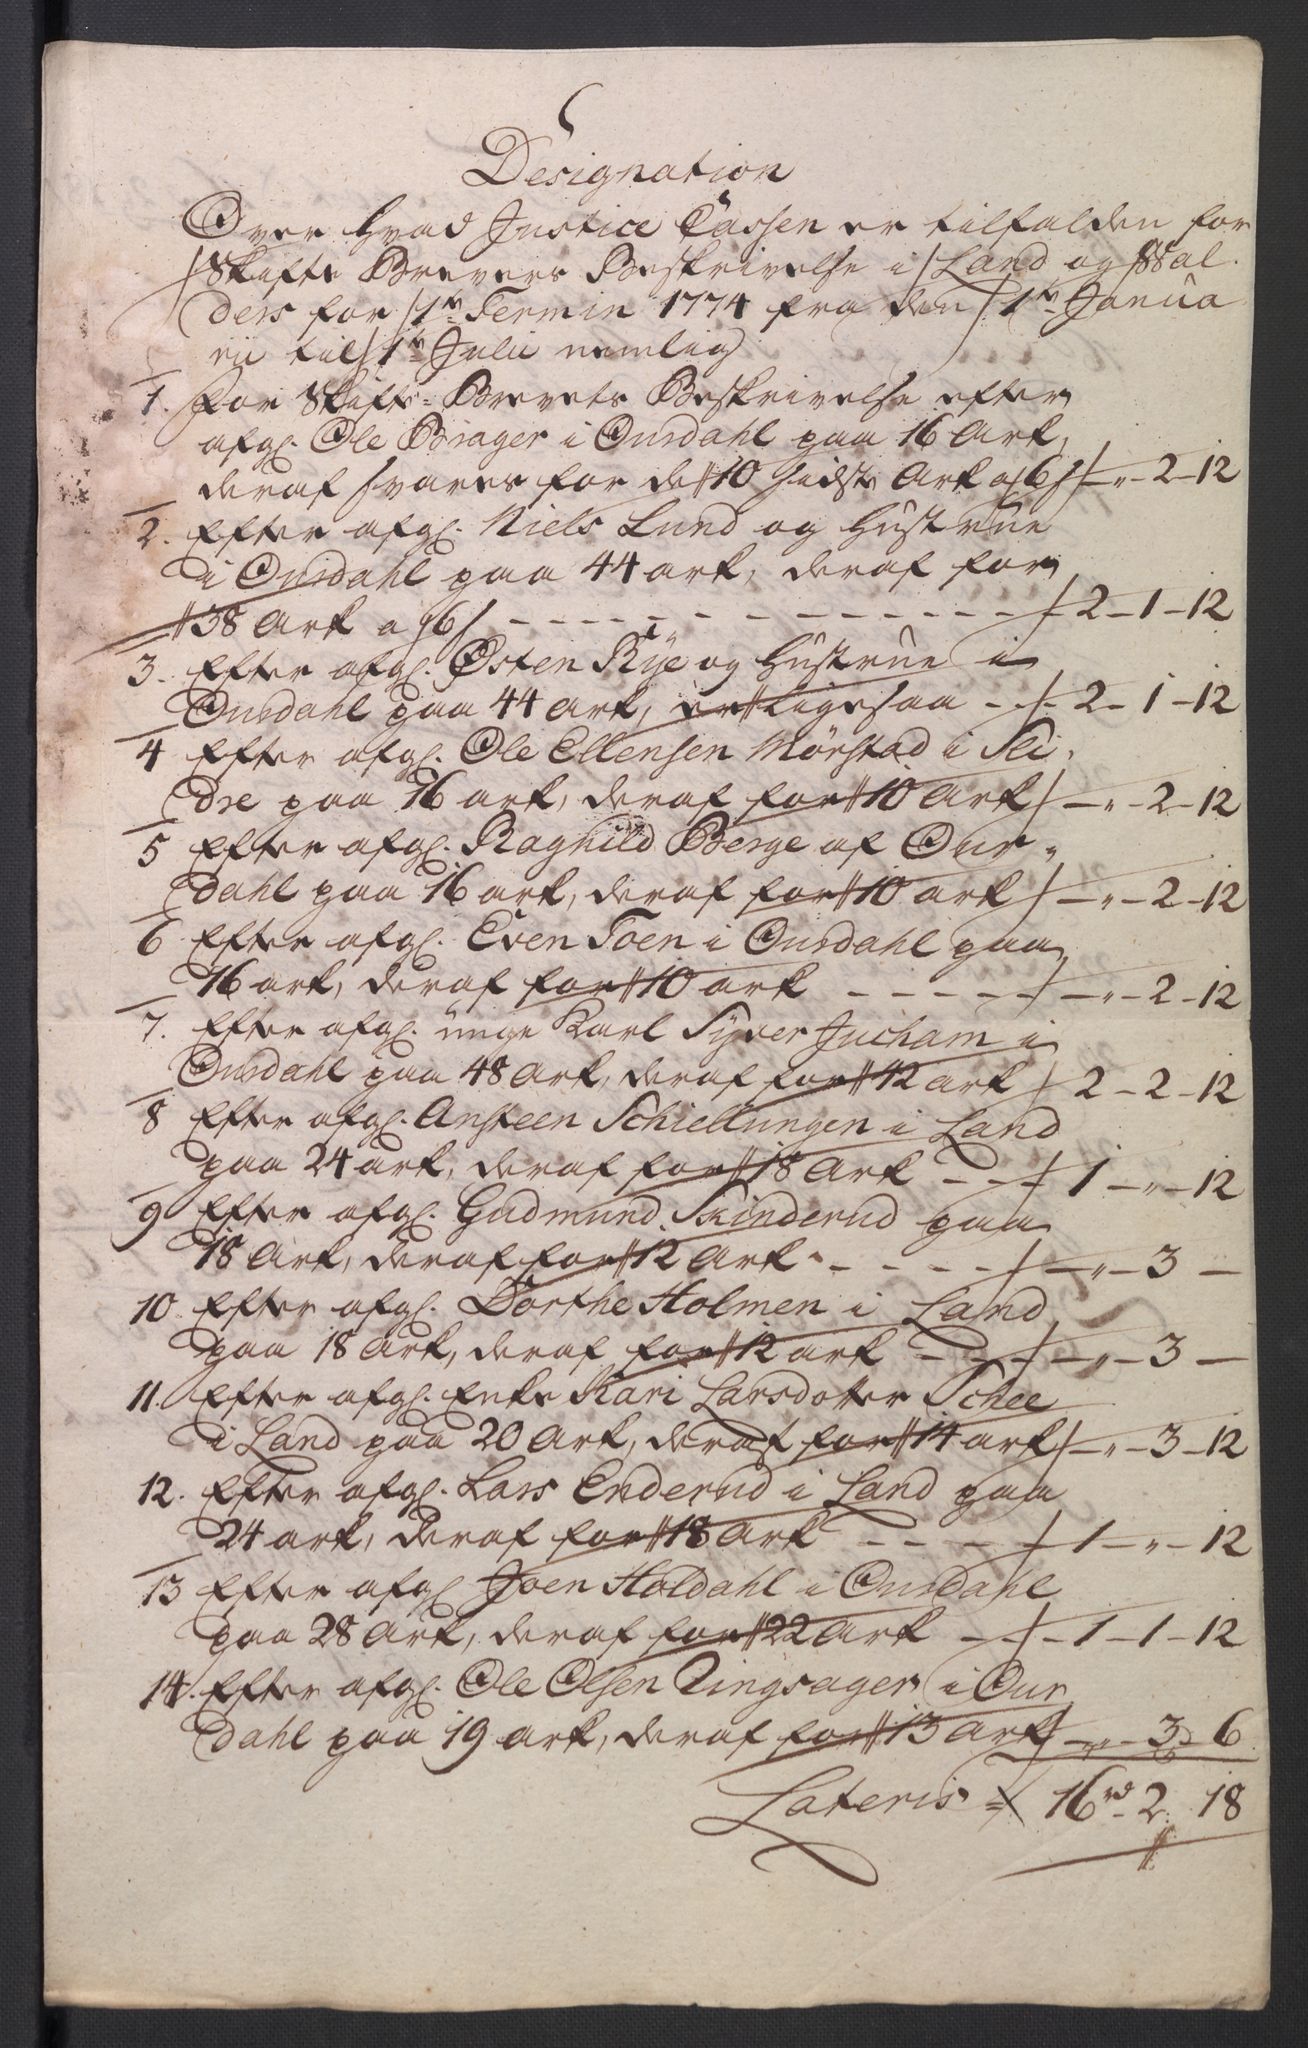 Designation
Over hvad Justice Cassen er tilfalden for
Skifte Brevers Beskrivelse i Land og Wal-
ders for 1te Termin 1774 fra den 1te Janua
rii til 1te Julii nemlig
1. For Skifte-Brevets Beskrivelse efter
afgl. Ole Brager i Ourdahl paa 16 Ark,
deraf svares for de 10 sidste Ark a 6 s - " - 2 - 12
2. Efter afgl. Niels Lund og Hustrue
i Ourdahl paa 44 ark, deraf for
38 Ark a 6 s - 2 - 1 - 12
3. Efter afgl. Østen Rye og Hustrue i
Ourdahl paa 44 Ark, er ligesaa - 2 - 1 - 12
4 Efter afgl. Ole Ellensen Mörstad i Sli-
dre paa 16 ark, deraf for 10 Ark - " - 2 - 12
5 Efter afgl. Ragnild Berge af Our-
dahl paa 16 ark, deraf for 10 ark - " - 2 - 12
6 Efter afgl. Even Toen i Ourdahl paa
16 ark, deraf for 10 ark - " - 2 - 12
7. Efter afgl. unge Karl Syver Jucham i
Ourdahl paa 48 Ark, deraf for 42 ark 2 - 2 - 12
8 Efter afgl. Ansteen Schiellungen i Land
paa 24 ark, deraf for 18 Ark - 1 - " - 12
9 Efter afgl. Gudmund Skinderud paa
18 Ark, deraf for 12 Ark - " - 3 -
10. Efter afgl. Dorthe Holmen i Land
paa 18 Ark, deraf for 12 ark - " - 3 -
11. Efter afgl. Enke Kari Larsdotter Schee
i Land paa 20 Ark, deraf for 14 ark - " - 3 - 12
12. Efter afgl. Lars Enderud i Land paa
24 ark, deraf for 18 Ark - 1 - " - 12
13 Efter afgl. Joen Holdahl i Ourdahl
paa 28 Ark, deraf for 22 Ark - 1 - 1 - 12
14. Efter afgl. Ole Olsen Lingsager i Our
dahl paa 19 ark, deraf for 13 Ark - " - 3 - 6
Lateris 16 rd - 2. 18